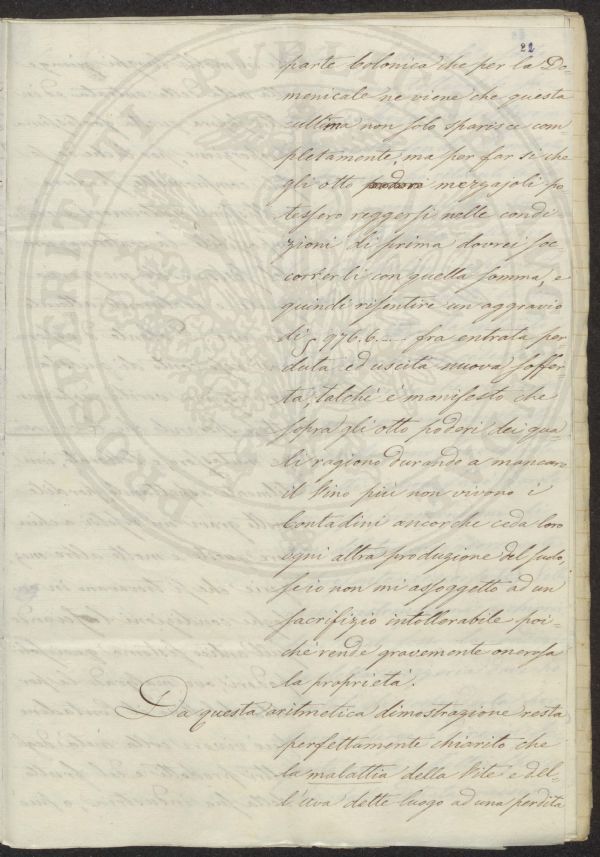 22
parte colonica che per la Do-
menicale ne viene che questa
ultima non solo sparisce com
pletamente, ma per far si che
gli otto mezzajoli po
tessero reggersi nelle condi
zioni di prima dovrei soc-
correrli con quella somma, e
quindi risentire un aggravio
di £ 976.6.— fra entrata per
duta ed uscita nuova soffer-
ta, talchè è manifesto che
sopra gli otto poderi dei qua-
li ragiono durando a mancare
il Vino più non vivono i
Contadini ancorche ceda loro
ogni altra produzione del suolo,
se io non mi assoggetto ad un
sacrifizio intollerabile poi-
chè rende gravemente onerosa
la proprietà.
Da questa aritmetica dimostrazione resta
perfettamente chiarito che
la malattia della Vite e del-
l'uva dette luogo ad una perdita